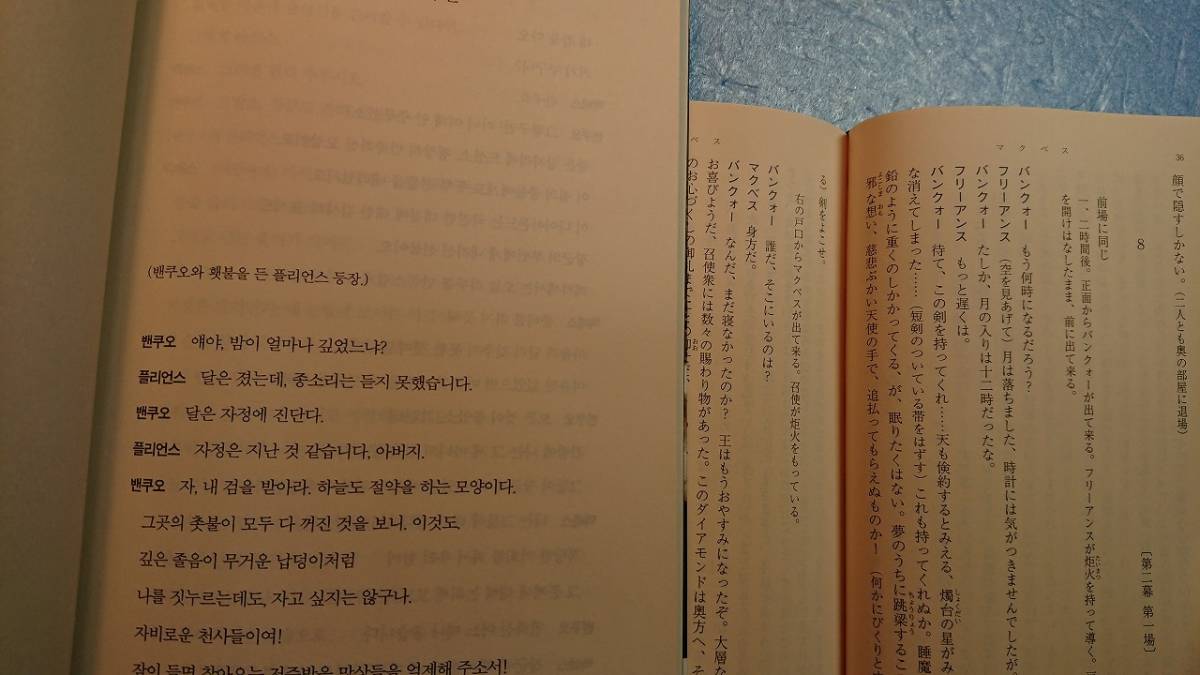 (밴쿠오와 횃불을 든 플리언스 등장.)
밴쿠오 얘야, 밤이 얼마나 깊었느냐?
플리언스 달은 졌는데, 종소리는 듣지 못했습니다.
밴쿠오 달은 자정에 진단다.
플리언스 자정은 지난 것 같습니다, 아버지.
밴쿠오 자, 내 검을 받아라. 하늘도 절약을 하는 모양이다.
그곳의 촛불이 모두 다 꺼진 것을 보니. 이것도.
깊은 졸음이 무거운 납덩이처럼
나를 짓누르는데도, 자고 싶지는 않구나.
자비로운 천사들이여!
잠이 들면 찾아오는 저주받은 망상들을 억제해 주소서!
マクベス
36
顔で隠すしかない。(二人とも奥の部屋に退場)
8
〔第二幕 第一場〕
前場に同じ
一、二時間後。正面からバンクォーが出て来る。フリーアンスが炬火を持って導く。
を開けはなしたまま、前に出て来る。
バンクォー もう何時になるだろう?
フリーアンス (空を見あげて)月は落ちました、時計には気がつきませんでしたが
バンクォー たしか、月の入りは十二時だったな。
フリーアンス もっと遅くは。
バンクォー 待て、この剣を持ってくれ……天も倹約するとみえる、燭台の星がみ
な消えてしまった……(短剣のついている帯をはずす)これも持ってくれぬか。睡魔
鉛のように重くのしかかってくる、が、眠りたくはない。夢のうちに跳梁するこ
邪な想い、慈悲ぶかい天使の手で、追払ってもらえぬものか!(何かにびくりと
ベス
る)剣をよこせ。
右の戸口からマクベスが出て来る。召使が炬火をもっている。
バンクォー 誰だ、そこにいるのは?
マクベス 身方だ。
バンクォー なんだ、まだ寝なかったのか? 王はもうおやすみになったぞ。大層な
お喜びようだ、召使衆には数々の賜わり物があった。このダイアモンドは奥方へ、そ
のお心づくしの御礼